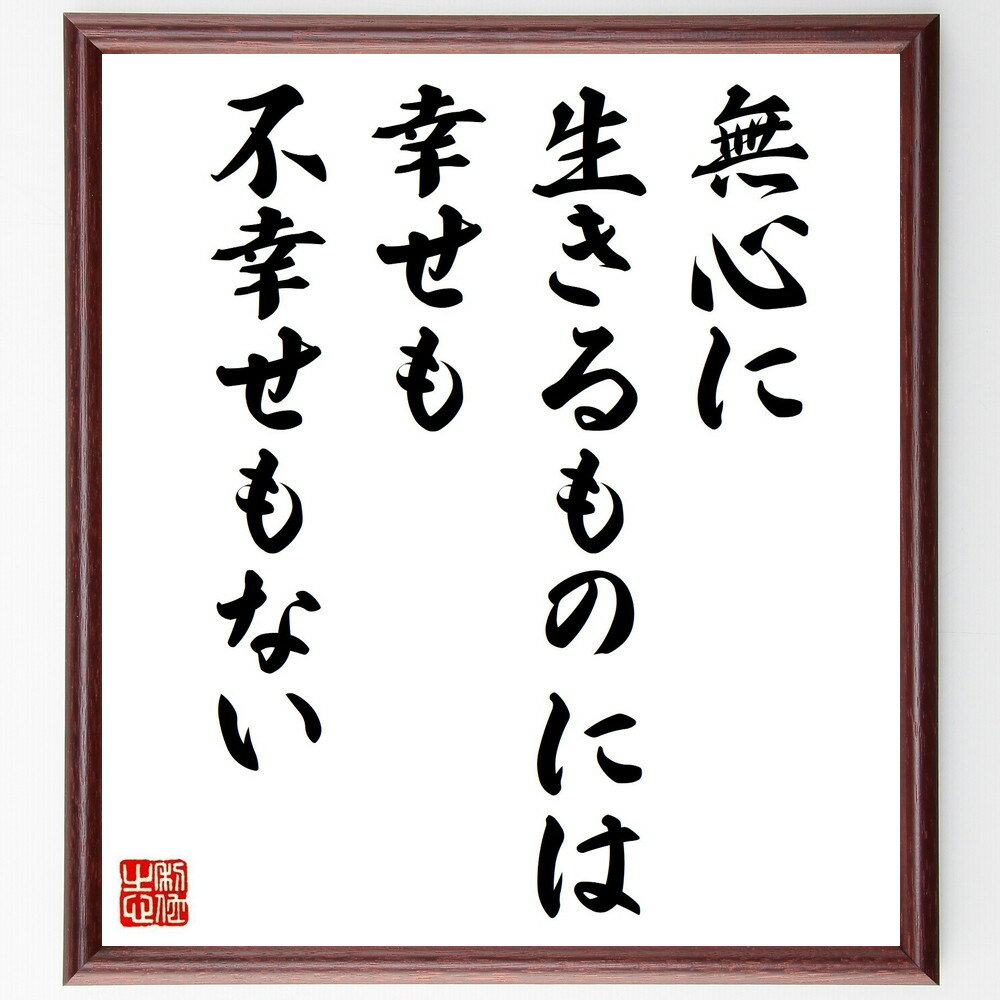 無心に
生きるものには
幸せも
不幸せもない